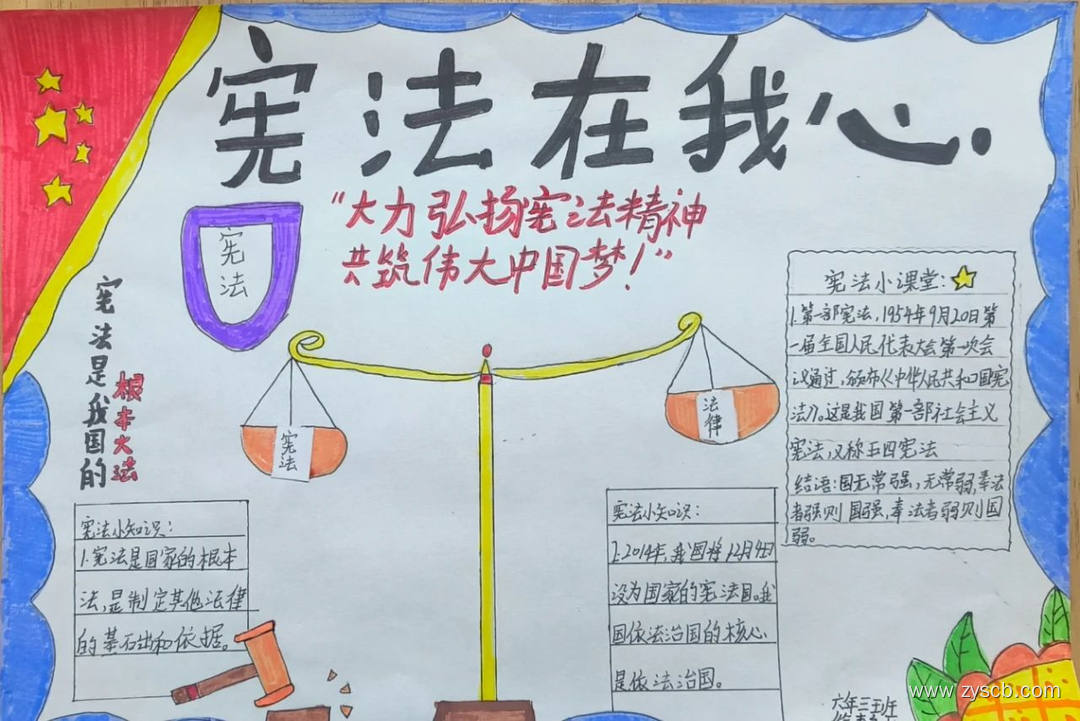 宪法在我心.
"大力弘扬宪法精神
共筑伟大中国梦!"
宪法
宪法是我国的
根本大法
宪法
法律
宪法小课堂:
1.第一部宪法,1954年9月20日第
一届全国人民代表大会第一次会
议通过,颁布《中华人民共和国宪
法》。这是我国第一部社会主义
宪法,又称五四宪法
结语:国无常强,无常弱,奉法
者强则国强,奉法者弱则国
弱。
宪法小知识:
1.宪法是国家的根本
法,是制定其他法律
的基石出和依据。
宪法小知识:
2.2014年,我国将12月4日
设为国家的宪法日。我
国依法治国的核心
是依法治国。
六年三班
www.zyscb.com